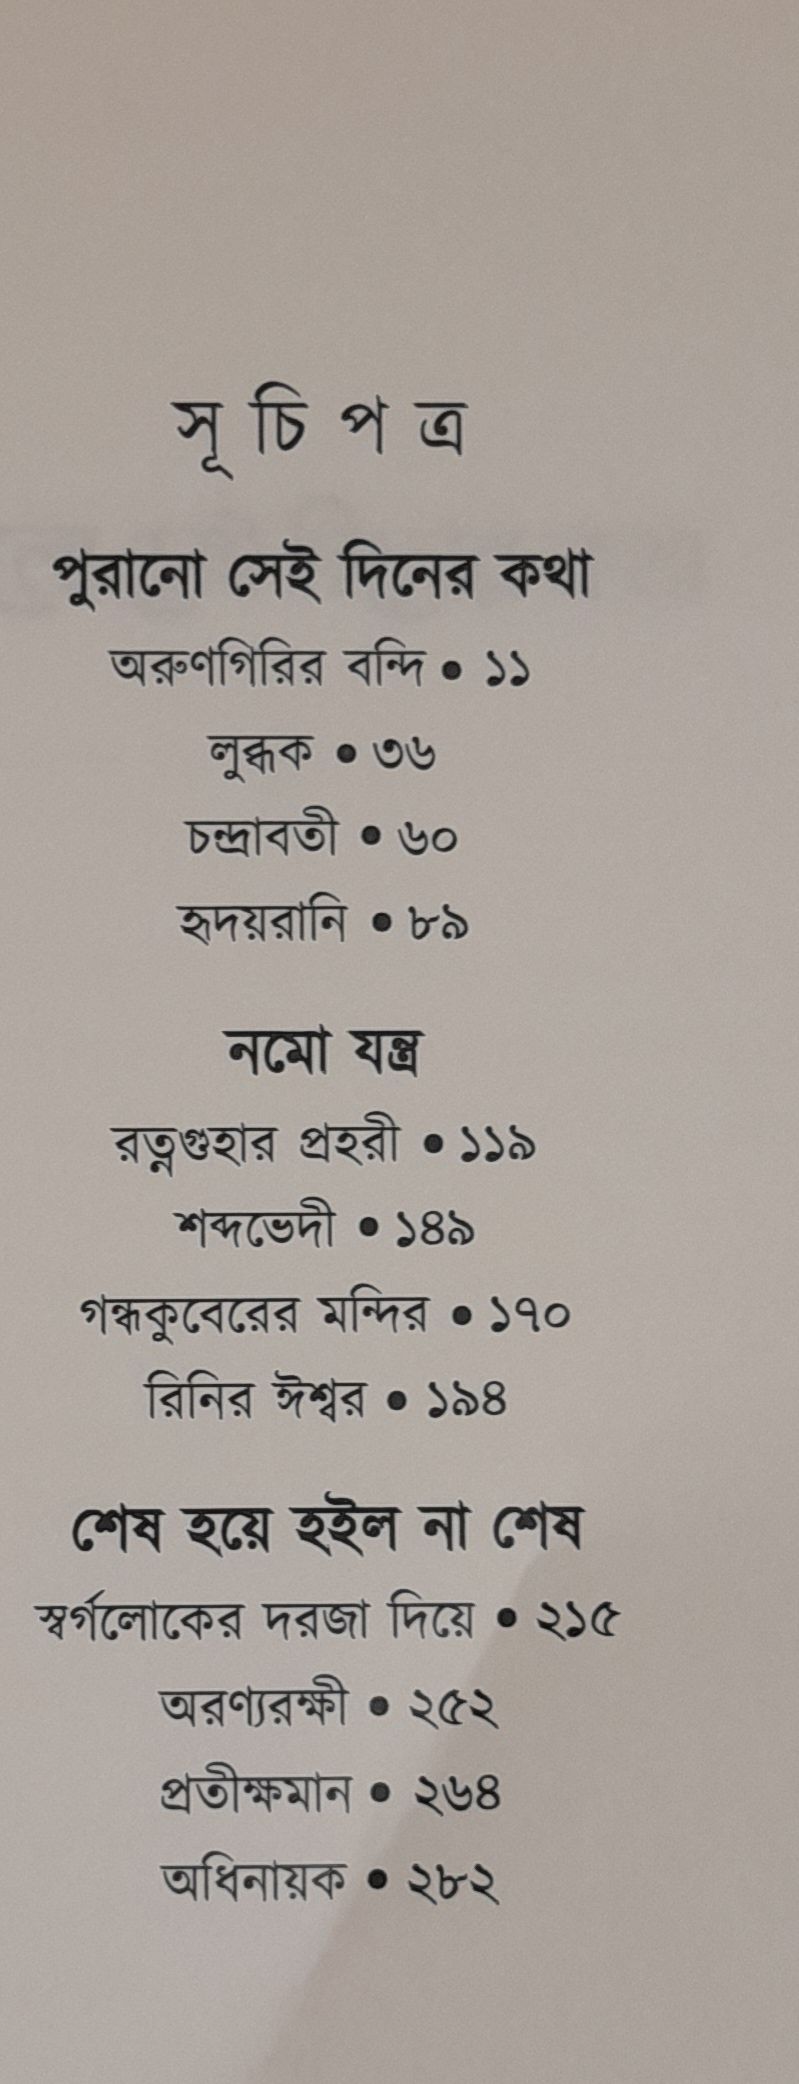 সূ চি প ত্র
পুরানো সেই দিনের কথা
অরুণগিরির বন্দি • ১১
লুব্ধক • ৩৬
চন্দ্রাবতী • ৬০
হৃদয়রানি • ৮৯
নমো যন্ত্র
রত্নগুহার প্রহরী • ১১৯
শব্দভেদী • ১৪৯
গন্ধকুবেরের মন্দির • ১৭০
রিনির ঈশ্বর • ১৯৪
শেষ হয়ে হইল না শেষ
স্বর্গলোকের দরজা দিয়ে • ২১৫
অরণ্যরক্ষী • ২৫২
প্রতীক্ষমান • ২৬৪
অধিনায়ক • ২৮২